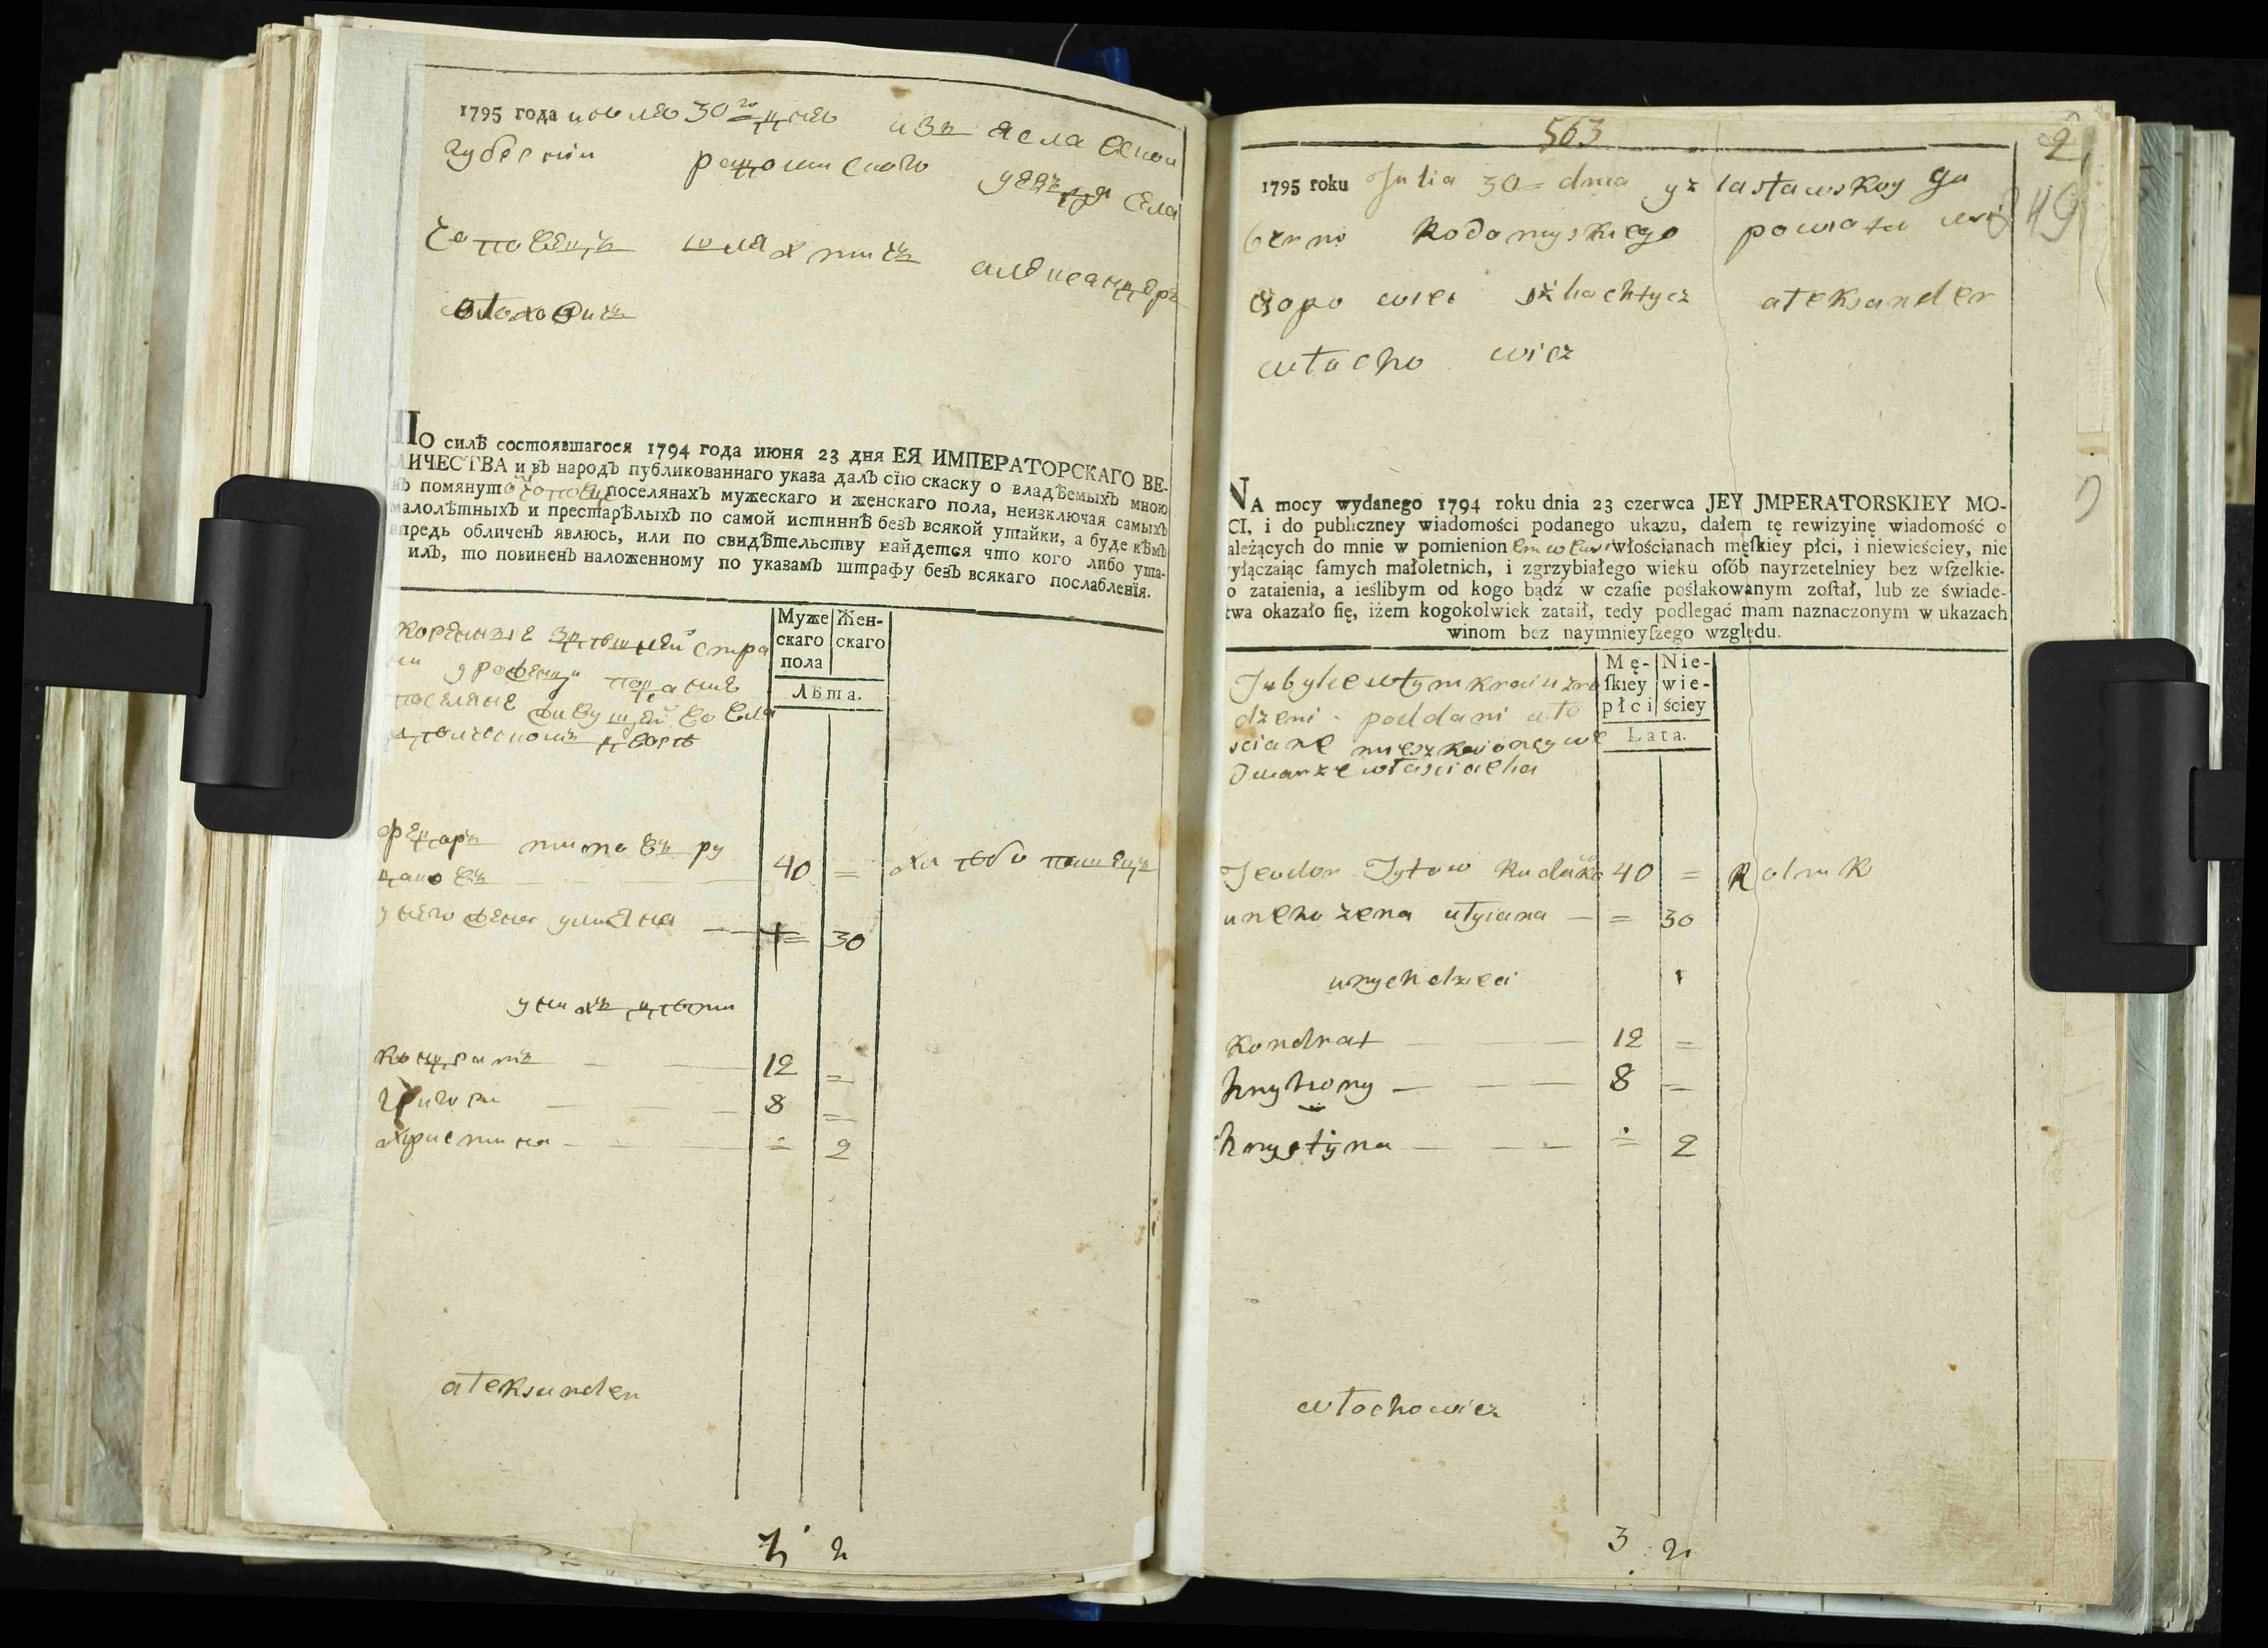 1795 года июля 30 го дня изъ ясла вскои
губернии радомиского уезда села
чоповецъ шляхтичъ александеръ
влоховичъ
ПО силѣ состоявшагося 1794 года июня 23 дня ЕЯ ИМПЕРАТОРСКАГО ВЕ-
ЛИЧЕСТВА и въ народъ публикованнаго указа далъ сїю скаску о владѣемыхъ мною
въ помянутой поселянахъ мужескаго и женскаго пола, неизключая самыхъ
малолѣтныхъ и престарѣлыхъ по самой истиннѣ безъ всякой утайки, а буде кѣмъ
впредь обличенъ явлюсь, или по свидѣтельству найдется что кого либо ута-
илъ, то повиненъ наложенному по указамъ штрафу безъ всякаго послабленїя.
Муже Жен-
скаго скаго
пола
Лѣта.
коренные здешней стра
ни урожинци подание
поселяне живущей во вла
дворе
федоръ титовъ ру
даковъ 40 = хлебопашецъ
у него жена улияна = 30
у нихъ дети
кондратъ 12 =
григори 8 =
христина = 2
ateksander
3 2
563
2
1795 roku Julia 30 = dnia yz lastawskoy gu
berni Radomyskiego powiatu wsi
czopo wiec szlachtycz ateksander
wtocho wicz
NA mocy wydanego 1794 roku dnia 23 czerwca JEY JMPERATORSKIEY MO-
CI, i do publiczney wiadomości podanego ukazu, dałem tę rewizyinę wiadomość o
ależących do mnie w pomienion em w ewsi włościanach męſkiey płci, i niewieściey, nie
yłączaiąc ſamych małoletnich, i zgrzybiałego wieku oſób nayrzetelniey bez wſzelkie-
o zataienia, a ieślibym od kogo bądź w czaſie poślakowanym zoſtał, lub ze świade-
twa okazało ſię, iżem kogokolwiek zataił, tedy podlegać mam naznaczonym w ukazach
winom bez naymnieyſzego względu.
Mę- Nie-
ſkiey wie-
płci ściey
Lata.
Tubylce wtym kraiu zro
dzeni poddani wto
sciane mieszkaioncy we
dwarze wtasciciela
Teodor Tytow Rudako 40 = Rolnik
uneho zena utyiana = 30
unych dzieci
Kondrat 12 =
hryhory 8 =
hrystyna = 2
wtochowicz
3 2